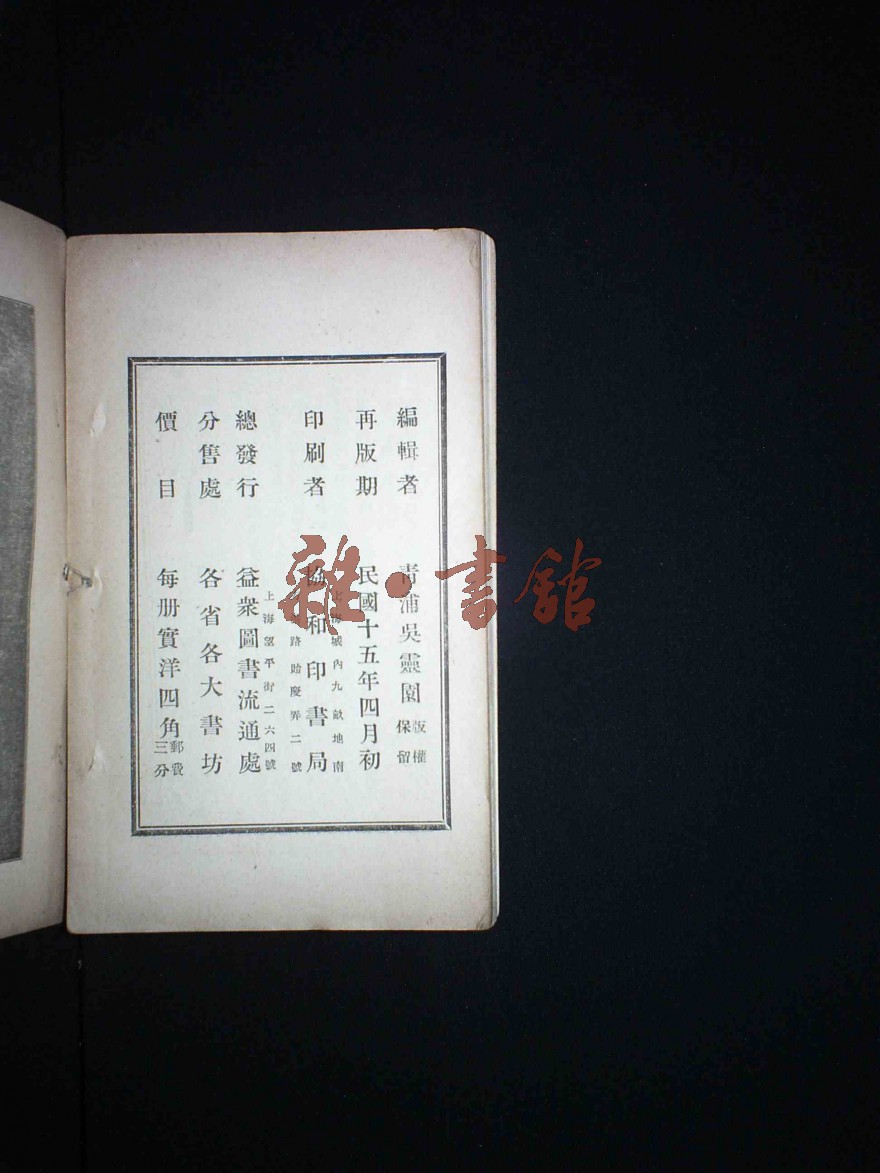 編輯者 青浦吳靈園 版權保留
再版期 民國十五年四月初
上海城內九畝地南
印刷者 協和印書局
路貽慶弄二號
上海望平街二六四號
總發行 益衆圖書流通處
分售處 各省各大書坊
價目 每册實洋四角 郵費三分
雜·書館